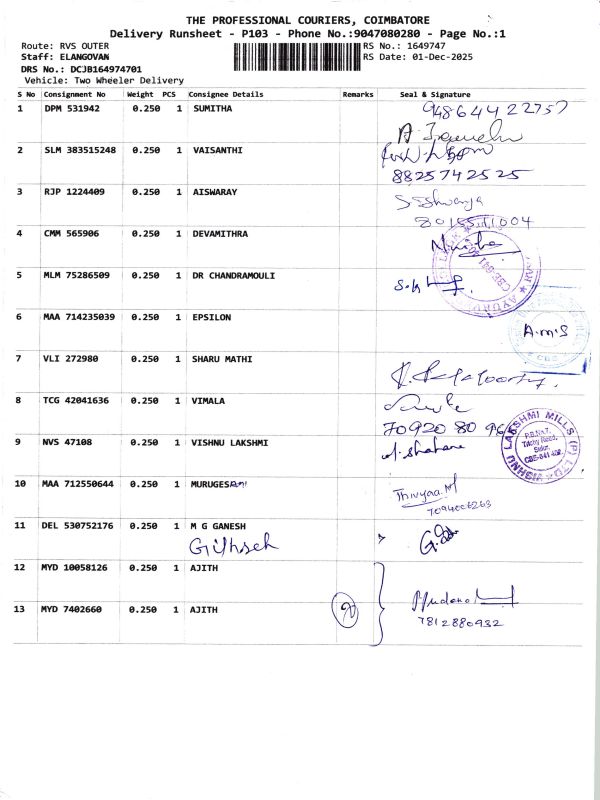 THE PROFESSIONAL COURIERS, COIMBATORE
Delivery Runsheet - P103 - Phone No.:9047080280 - Page No.:1
Route: RVS OUTER RS No.: 1649747
Staff: ELANGOVAN RS Date: 01-Dec-2025
DRS No.: DCJB164974701
Vehicle: Two Wheeler Delivery
S No Consignment No Weight PCS Consignee Details Remarks Seal & Signature
1 DPM 531942 0.250 1 SUMITHA
2 SLM 383515248 0.250 1 VAISANTHI
8825742525
3 RJP 1224409 0.250 1 AISWARAY
4 CMM 565906 0.250 1 DEVAMITHRA
5 MLM 75286509 0.250 1 DR CHANDRAMOULI
6 MAA 714235039 0.250 1 EPSILON
A.M.S
7 VLI 272980 0.250 1 SHARU MATHI
8 TCG 42041636 0.250 1 VIMALA
9 NVS 47108 0.250 1 VISHNU LAKSHMI
VISHNU LAKSHMI MILLS (P) LTD
10 MAA 712550644 0.250 1 MURUGESAN
Thivyaa.M
11 DEL 530752176 0.250 1 M G GANESH
12 MYD 10058126 0.250 1 AJITH
13 MYD 7402660 0.250 1 AJITH 2
7812880932